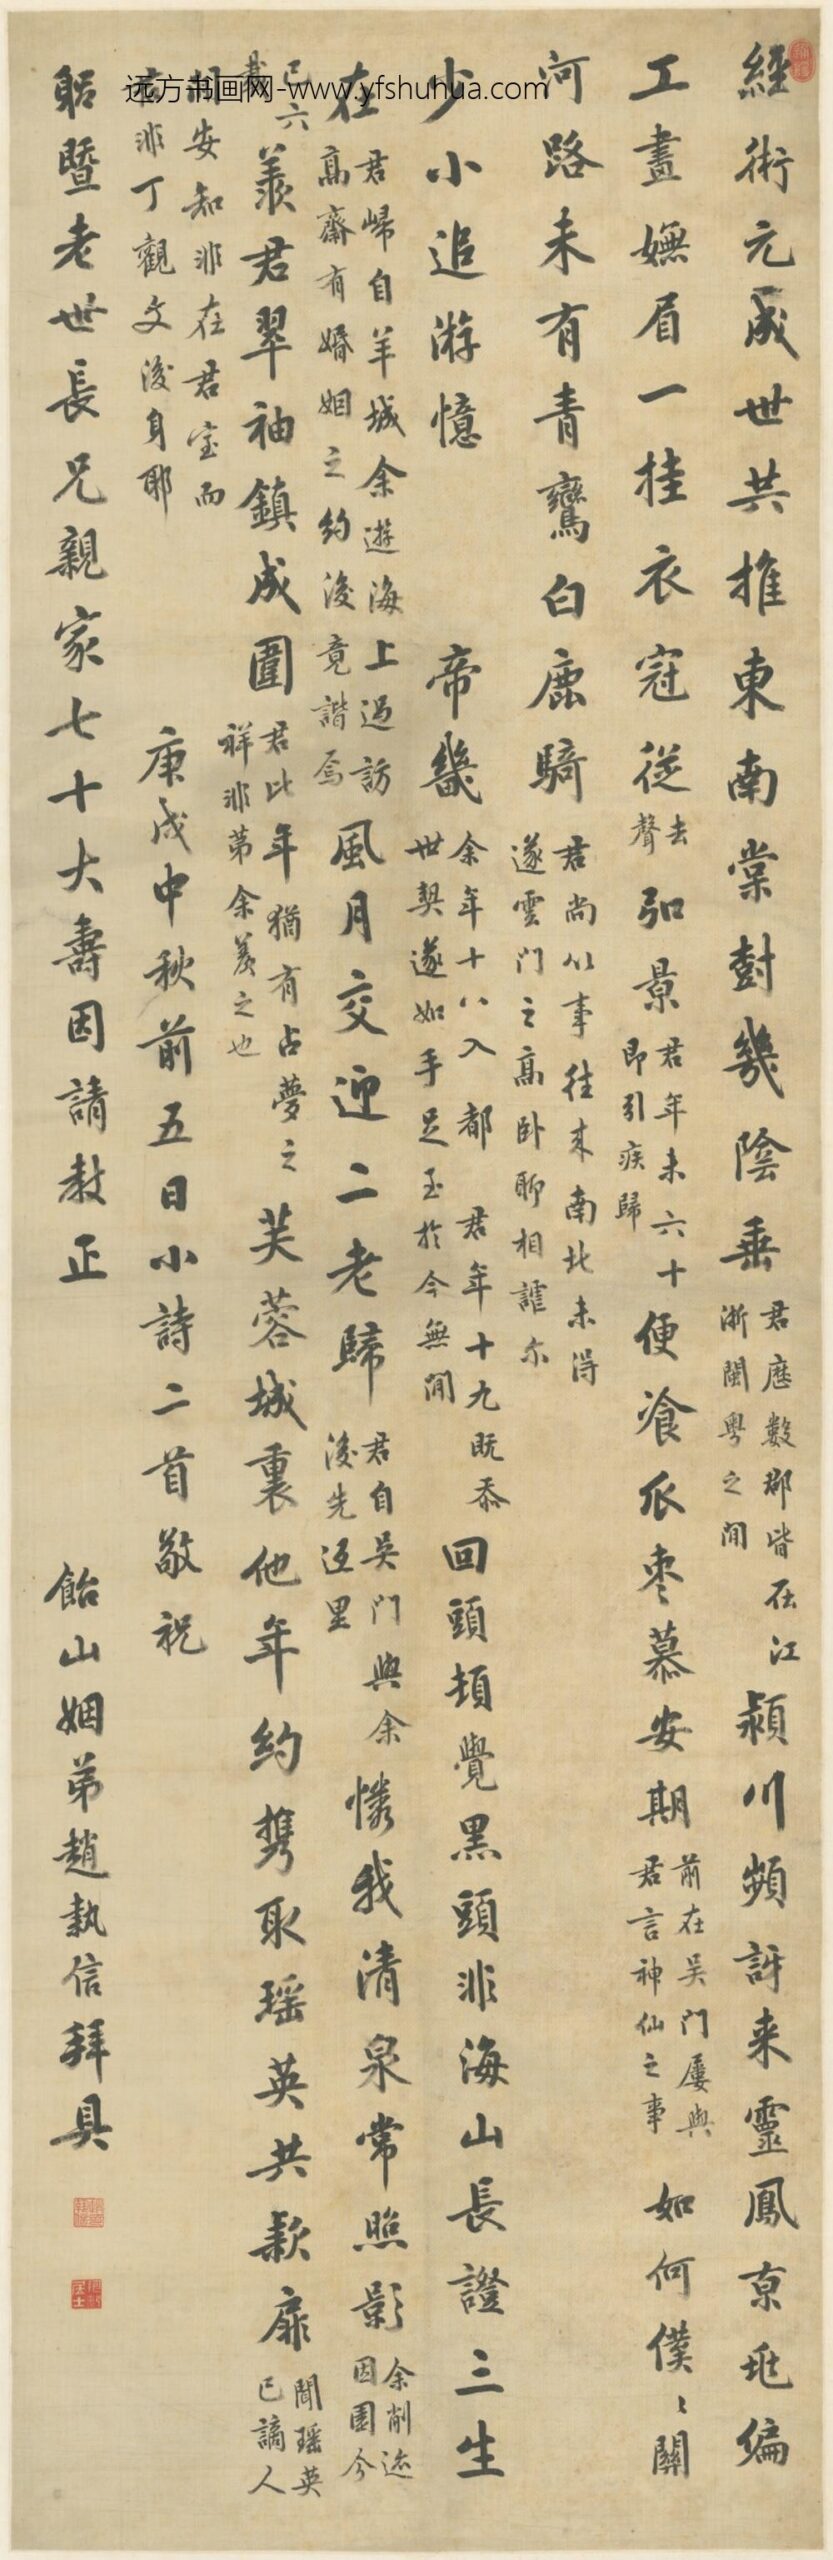 远方书画网-www.yfshuhua.com
經術元成世共推東南棠樹幾陰垂君歷數郡皆在江浙閩粵之間潁川頻訝来靈鳳京兆偏
工畫嫵眉一挂衣冠從去聲弘景君年未六十即引疾歸便飡瓜棗慕安期前在吴门屢與君言神仙之事如何僕〻關
河路未有青鸞白鹿騎君尚以事往来南北未得遂雲门之高卧聊相謔尔
少小追游憶帝畿余年十八入都君年十九既忝世契遂如手足至於今無間回頭頓覺黑頭非海山長證三生
在君歸自羊城余遊海上過訪高齋有婚姻之約後竟諧焉風月交迎二老歸君自吴门與余後先還里憐我清泉常照影余削迹因園今
已六羡君翠袖鎮成圍君比年猶有占夢之祥非第余羡之也芙蓉城裏他年約携取瑶英共款扉聞瑶英已謫人
安知非在君室而非丁觀文後身耶
庚戌中秋前五日小詩二首敬祝
暨老世長兄親家七十大壽因請教正
飴山姻弟趙執信拜具